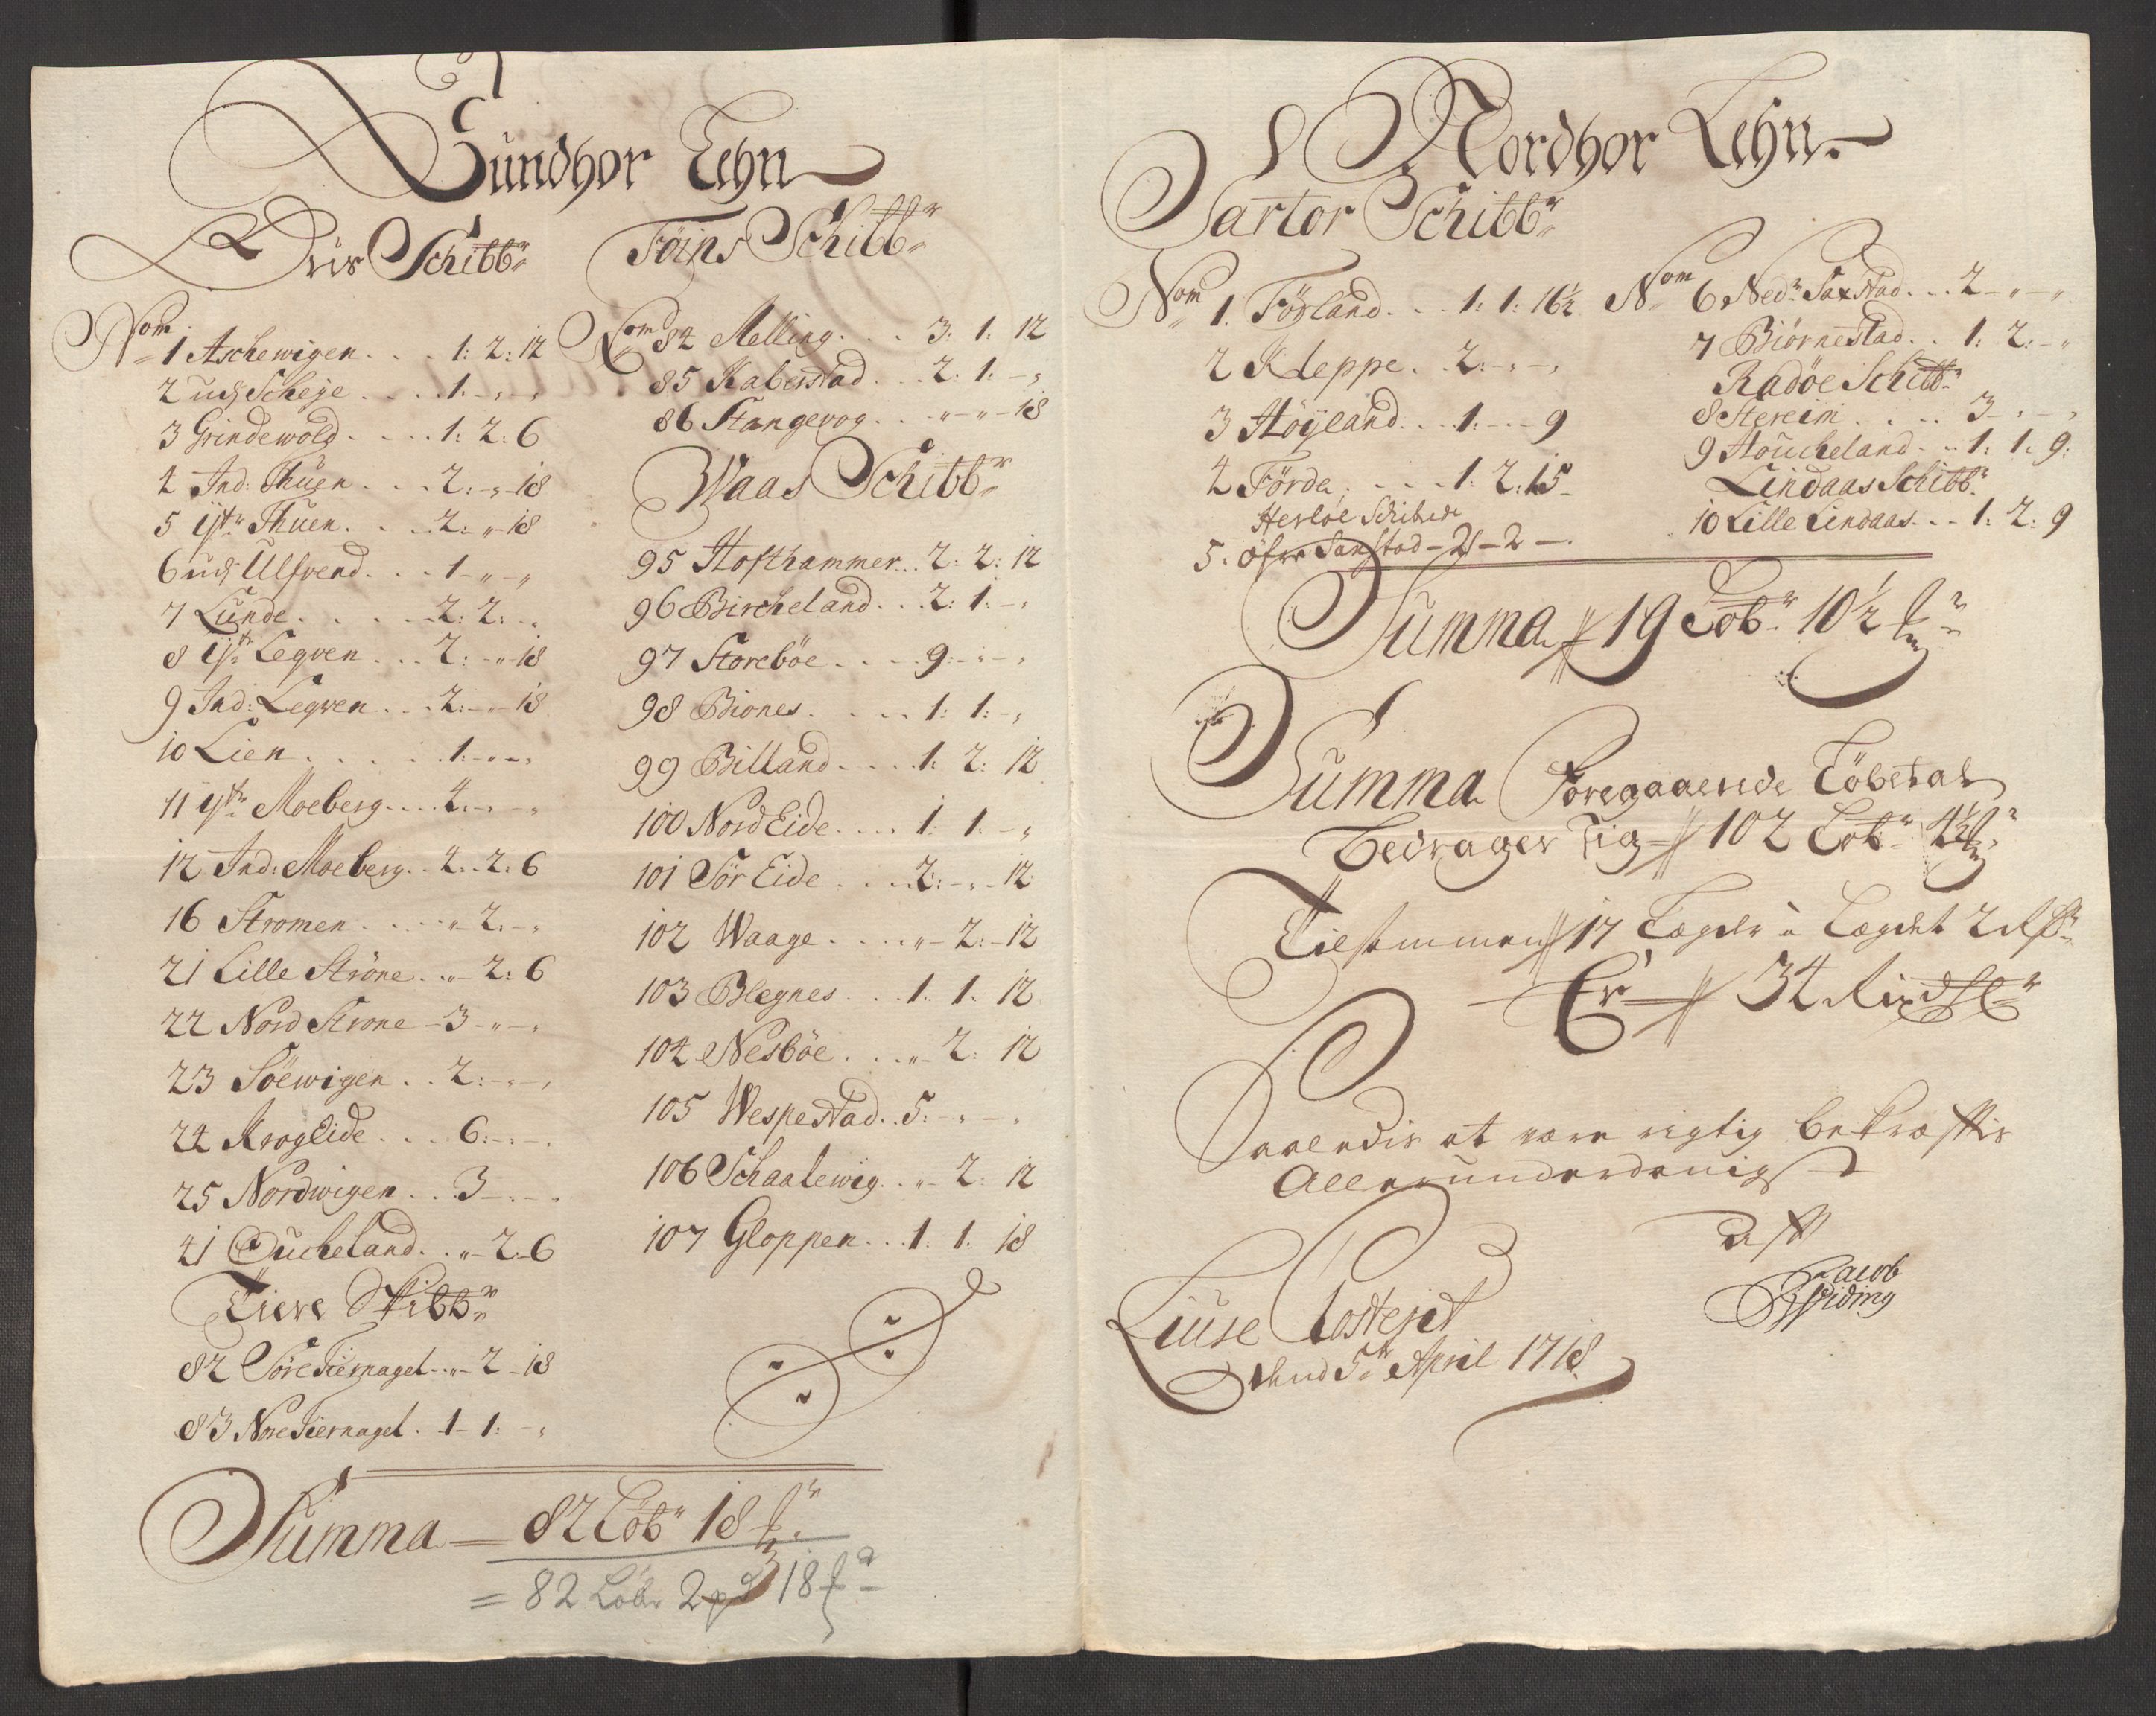 Sundhor Lehn
Ous Schibbr
Nom 1 Aschewigen . . . 1: 2: 12
2 udj Scheje . . . 1. - „ - „
3 Grindewold . . . . 1: 2: 6
4 Ind: Thuen . . . 2: - „ 18
5 ijtr Thuen . . . 2: „ - 18
6 udj Ulfvend . . . 1 - „ - „
7 Lunde . . . . . 2: 2: - „
8 ijtr Legven . . . 2: - „ 18
9 Ind: Legven . . . 2: - „ - 18
10 Lien . . . . . 1. - „ - „
11 ijtr Moeberg . . . 4. - „ - „
12 Ind: Moeberg . . 4. 2: 6
16 Stromen . . . . „ - 2. - „
21 Lille Ströne . . „ - 2: 6
22 Nord Strone - 3 - „ - „
23 Söewigen . . 2: - „ - „
24 Krogeide . . . 6: - „ - „
25 Nordwigen . . 3 - „ - „
41 Oucheland . . „ - 2 - 6
Fiere Skibbr
82 Söre Tiernagel . . „ - 2 - 18
83 Nore Tiernagel . 1 - 1: - „
Föins Schibbr
Nom 84 Melling . . . 3: 1: 12
85 Kaberstad . . . 2: 1: - „
86 Stangevog . . „ - „ - 18
Waas Schibbr
95 Hofthammer . . 2: 2: 12
96 Bircheland . . . 2: 1: - „
97 Storeböe . . . . 9: - „ - „
98 Biones . . . . . 1: 1: - „
99 Billand . . . . 1: 2: 12
100 Nord Eide . . . . 1: 1. - „
101 Sör Eide . . . . 2: - „ - 12
102 Waage . . . . „ - 2: - 12
103 Blegnes . . . 1. 1. 12
104 Nesböe . . . „ - 2: 12
105 Wespestad . . 5: - „ - „
106 Schaalewig . . „ - 2: 12
107 Gloppen . . . 1. 1. 18
Summa — 82 Löbr 18
= 82 Löbr 2 pd 18
Nordhor Lehn
Sartor Schibbr
Nom 1. Fögland . . . 1: 1: 16½
2 Kleppe . . 2: - „ - „
3 Höyland . . . 1. - - - 9
4 Förde . . . . 1: 2: 15 -
Herloe Schibrede
5. Öfre Saxstad - 2 - 2 -
Nom 6 Nedr Saxstad . . . 2 - „ - „
7 Biörnestad . . 1: 2: - „
Radöe Schibbr
8 Htereim . . . . . 3 - „ - „
9 Houcheland . . . 1: 1. 9:
Lindaas Schibbr
10 Lille Lindaas . . . 1: 2: 9
Summa 19 Löbr 10½
Summa Foregaaende Löbetal
bedrager Sig 102 Löbr 4½
Tilsammen 17 Lægder à Lægdet 2 Rdr
Er 34 Rixdlr
Saaledis at være rigtig bekræfftis
Allerunderdanigst
aff
Jacob
Widing
Liuse Closteret
dend 5te April 1718